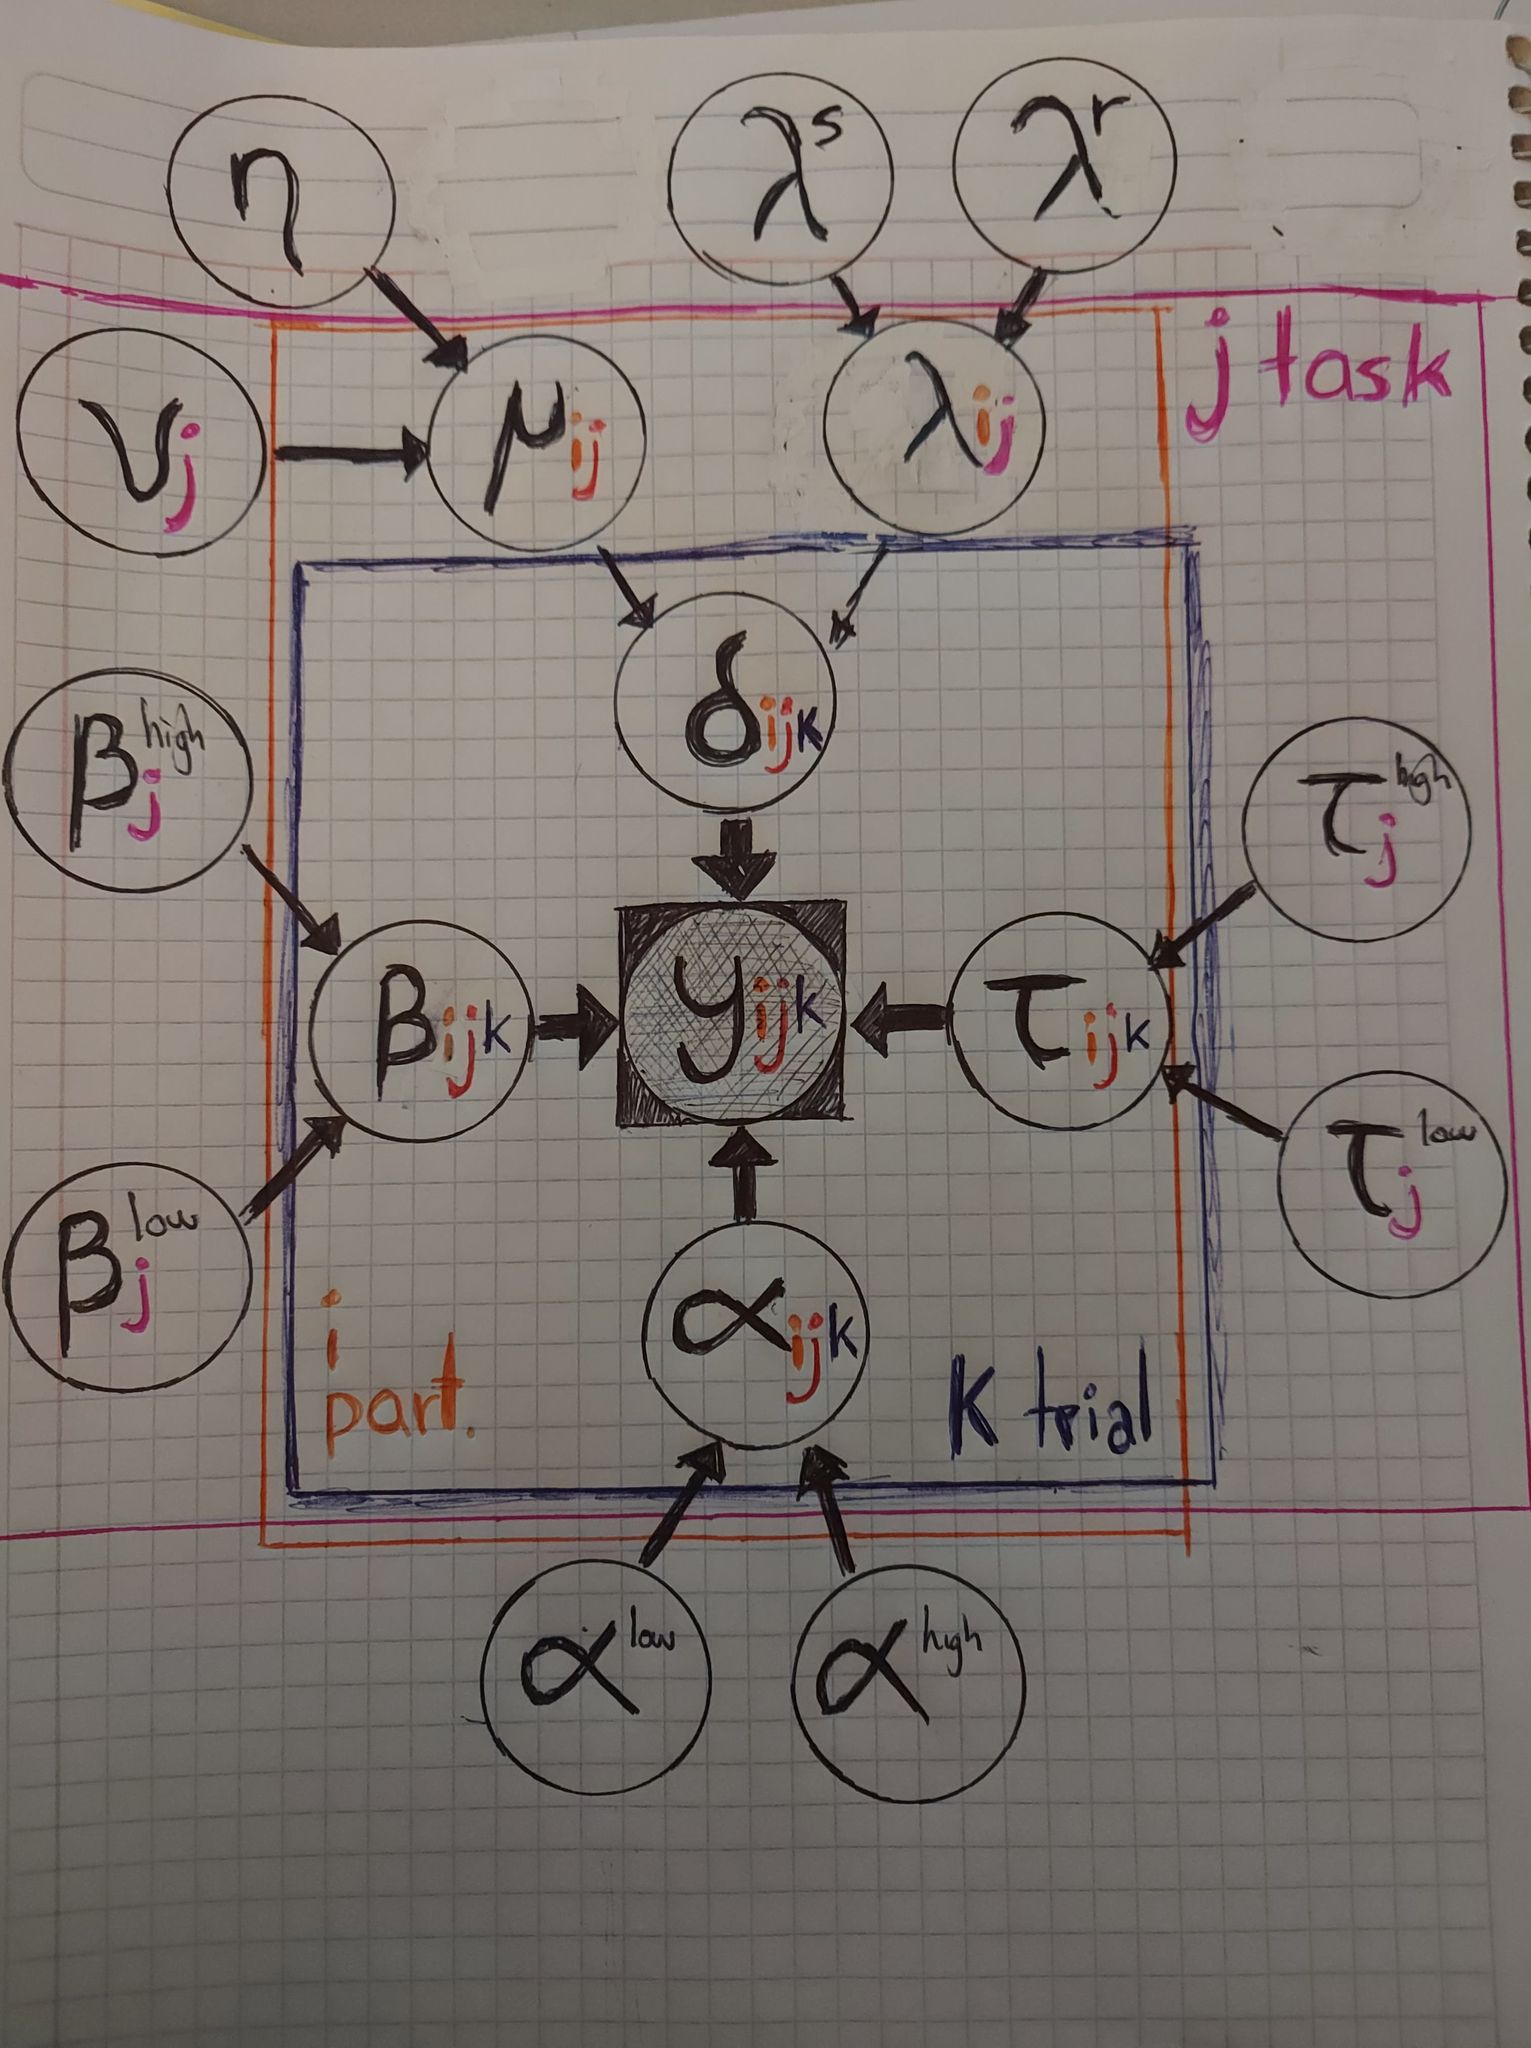 η
λˢ
λʳ
νj
μij
λij
j task
δijk
βj high
τj high
βijk
yijk
τijk
βj low
τj low
αijk
i
part.
K trial
α low
α high